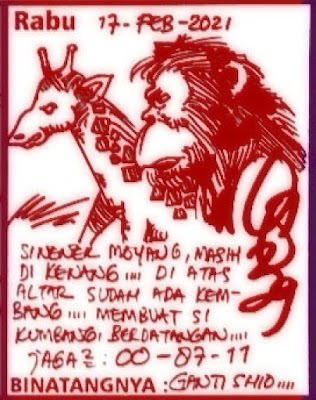 Rabu 17-FEB-2021
SINENEK MOYANG, MASIH
DI KENANG.... DI ATAS
ALTAR SUDAH ADA KEM-
BANG.... MEMBUAT SI
KUMBANG BERDATANGAN....
JAGA2 : 00-87-11
BINATANGNYA : GANTI SHIO....